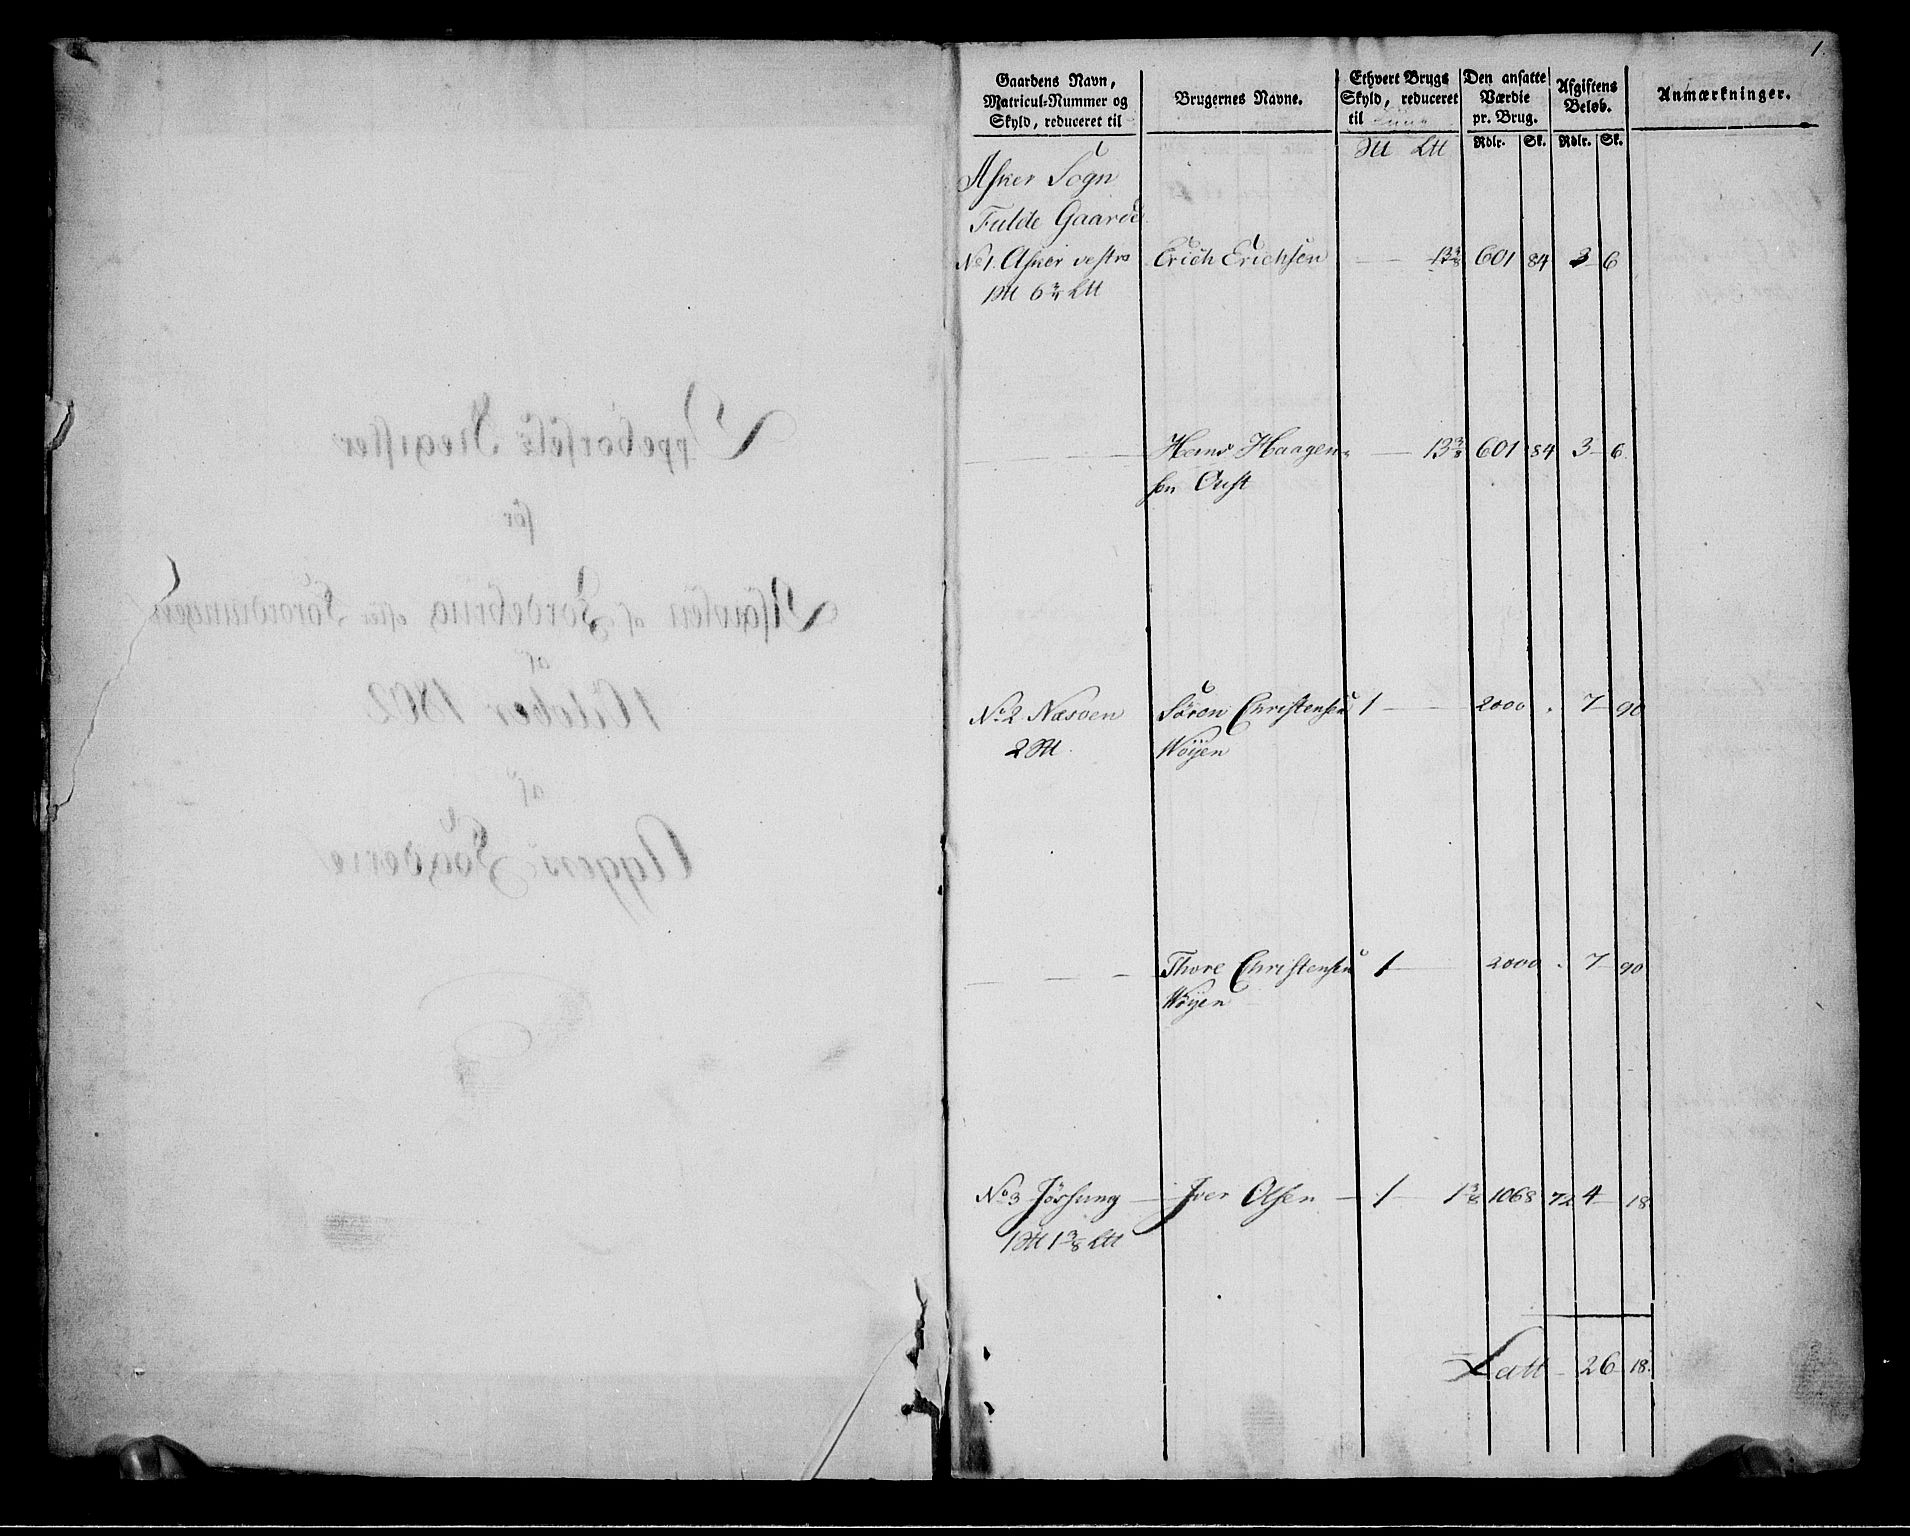 1.
Gaardens Navn,
Matricul-Nummer og
Skyld, reduceret til
Brugernes Navne.
Ethvert Brugs
Skyld, reduceret
til
Den ansatte
Værdie
pr. Brug.
Afgiftens
Beløb.
Anmærkninger.
Rdlr. Sk. Rdlr. Sk.
Asker Sogn
Fulde Gaarde
No 1. Asker vestre Erich Erichsen 13 3/8 601 84 3 6
6 3/4
Hans Haagen- 13 3/8 601 84 3 6
sen
No 2 Næsøen Søren Christensen 1 2000 . 7 90
2 Wøyen
Thore Christensen 1 2000 . 7 90
Wøyen
No 3 Jøssung Iver Olsen 1 1 3/8 1068 72 4 18
1 1 3/8
Latt 26 18.
Oppebørsels Register
for
Afgivten af Jordebrug efter Forordningen
af
1 October 1802
af
Aggers Fogderie